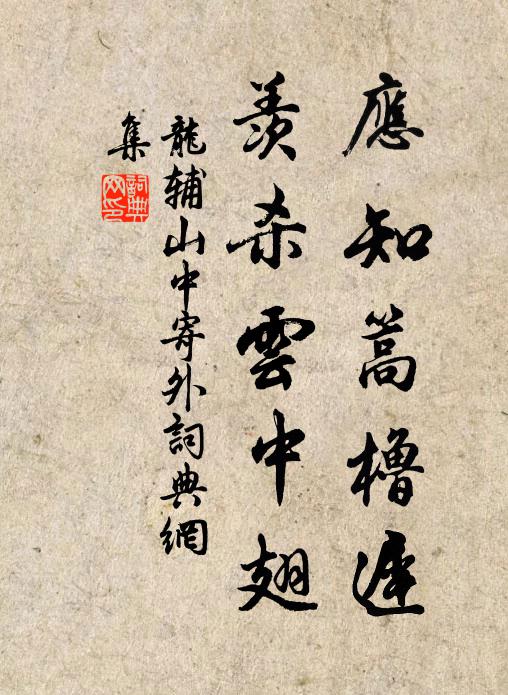 應知篙櫓遲
羨杀雲中翅
龍辅山中寄外詞典網
集
詞典
网印